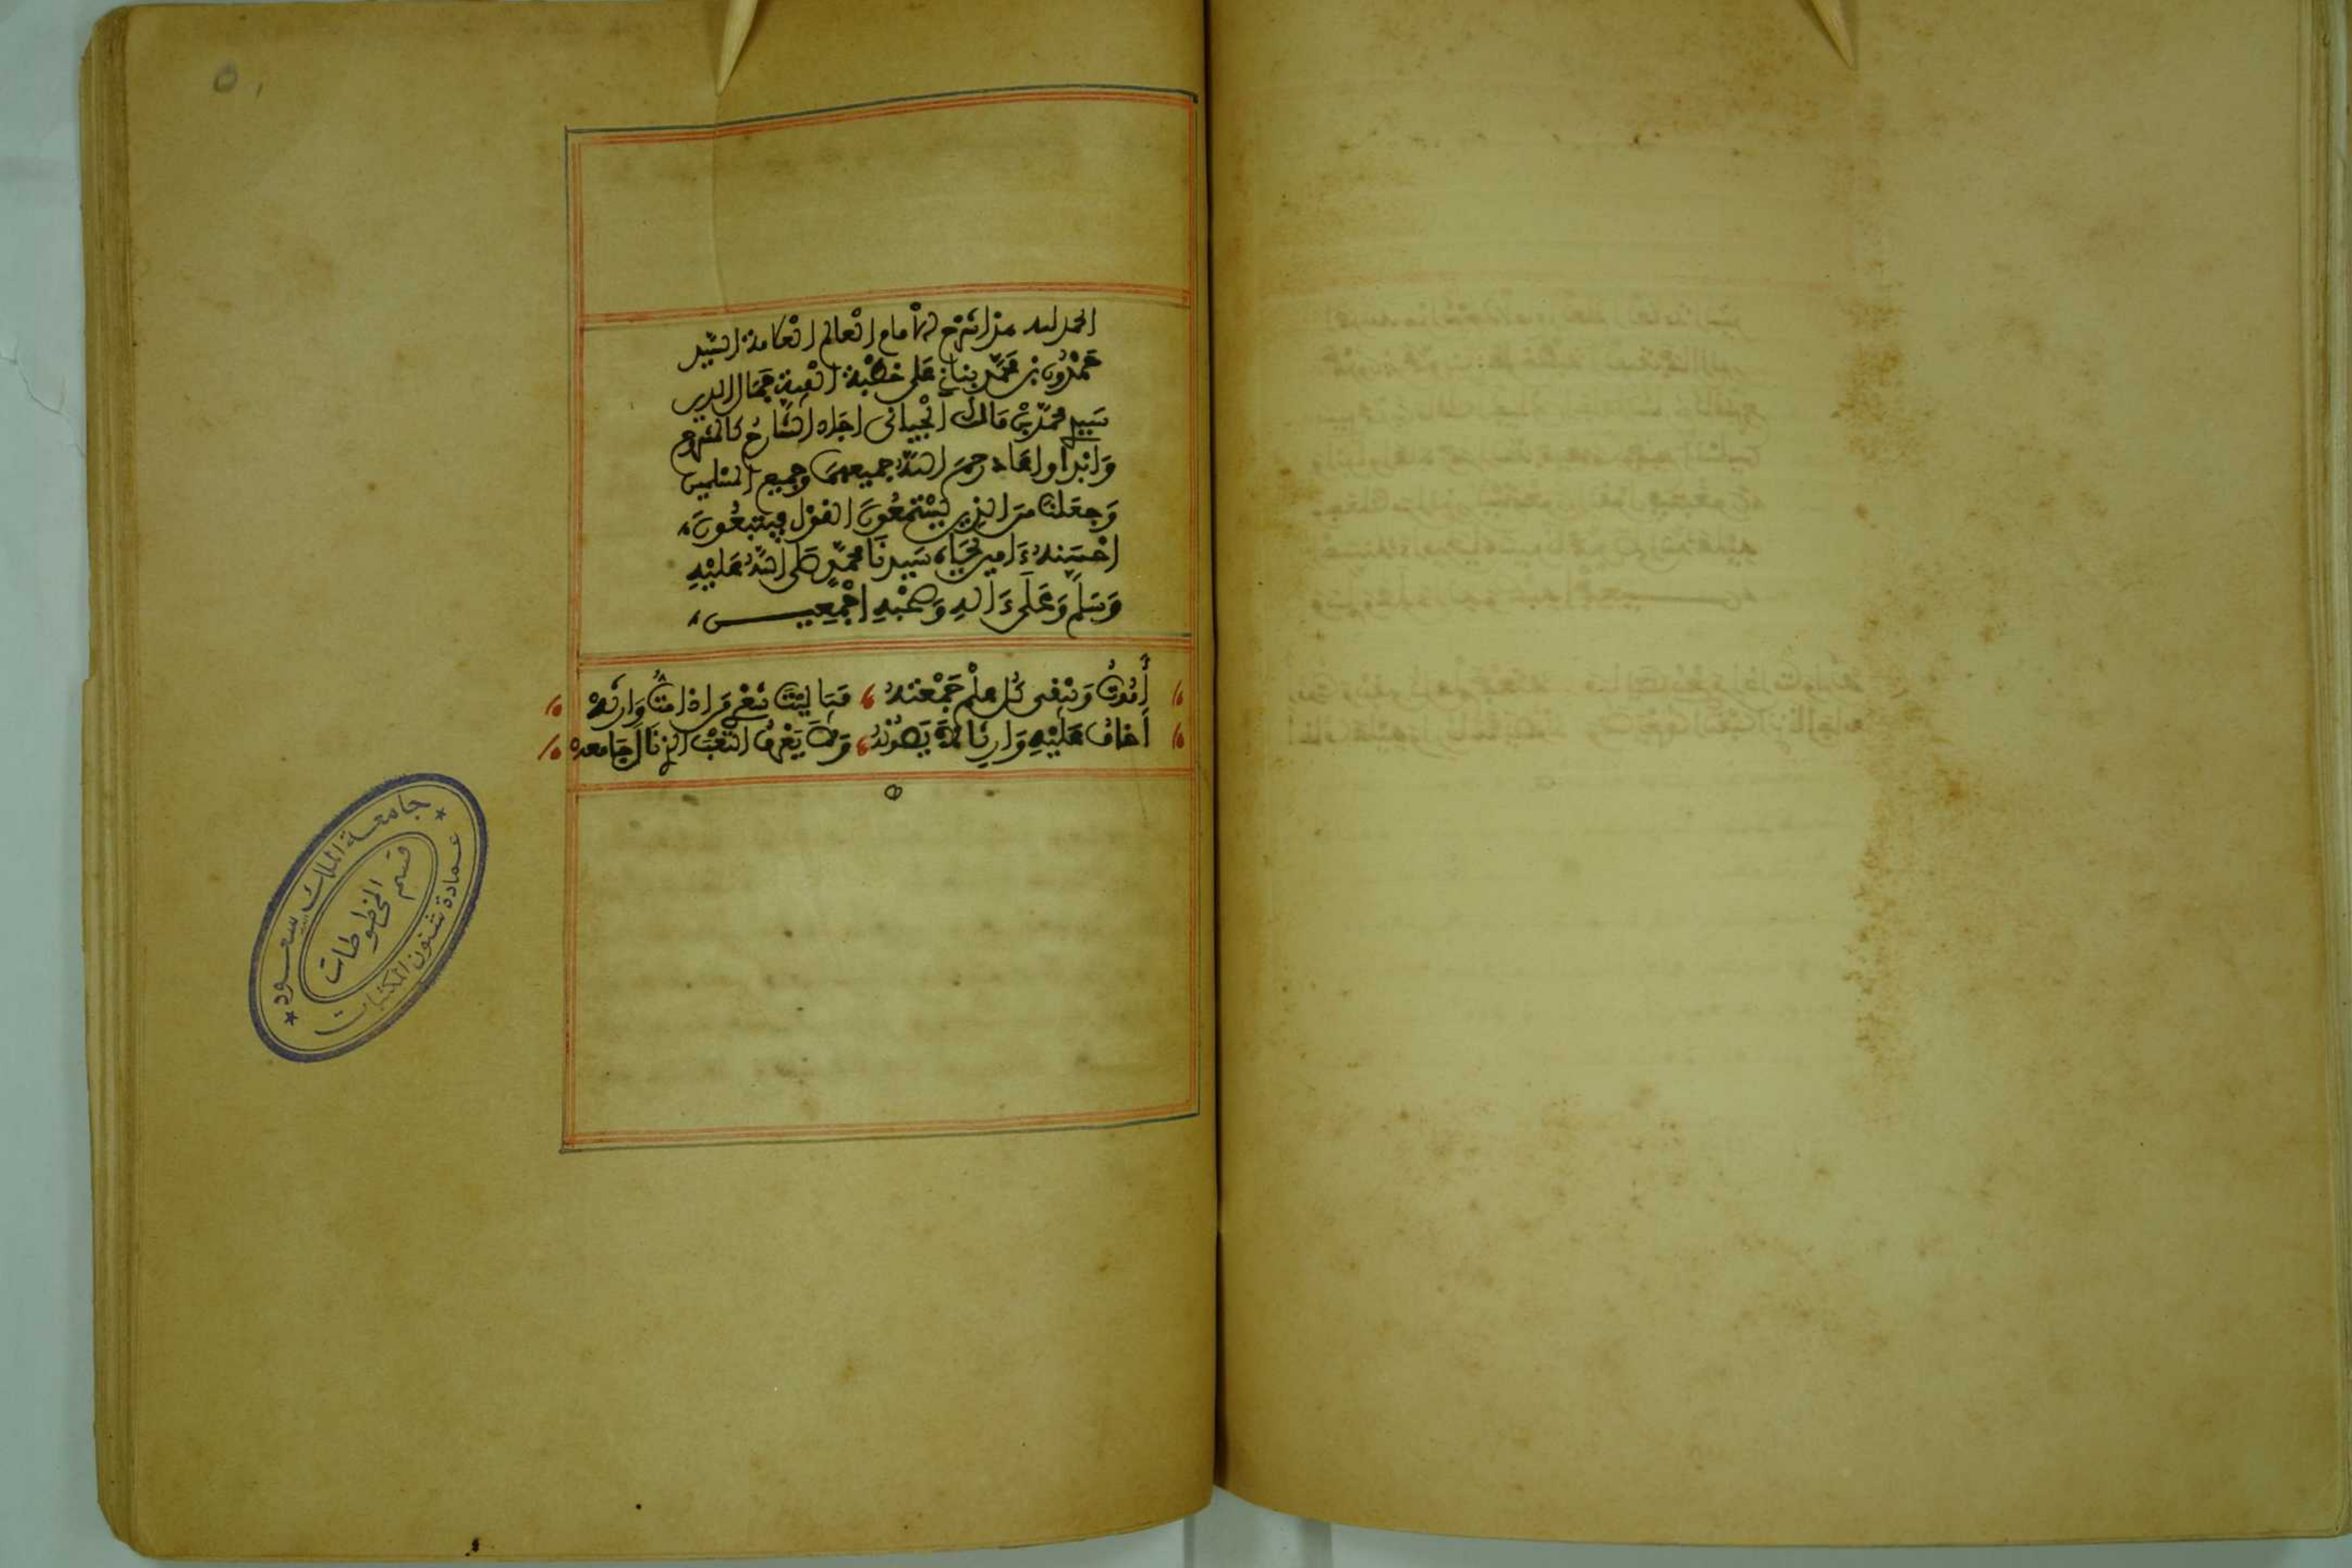 الحمد لله هذا شرح الإمام العالم العلامة السّيد
حَمْدُون بن محمَّد بناني على خطبة ألفية جمال الدين
سَيدِ محمّد بْن مَالك الْجياني اجله الشَّارحُ كالشرح
وَابْدا واعاد رحمَ اللهُ جميعهمَا وجميع المسلمين
وَجعَلنا مِنَ الذين يَسْتمعُونَ القوْل فيتبعُونَ
احْسَنهُ ءَامين بجَاه سَيدنَا محمّدٍ صَلى اللهُ عَليْهِ
وَسَلمَ وَعَلَى ءَالهِ وَصَحْبهِ اجْمعِيـــــن
أمُوتُ وَيَبْقى كُل علْم جَمَعْتهُ فيَا ليْتَ شعْري مَن اذا متُّ وَارثهْ
أخافُ عَليْهِ وَارثا لاَ يَصُونُهُ وَلاَ يَعْرفُ التعْبَ الذي نَال جَامعهْ
جامعة الملك سعود
عمادة شئون المكتبات
قسم المخطوطات